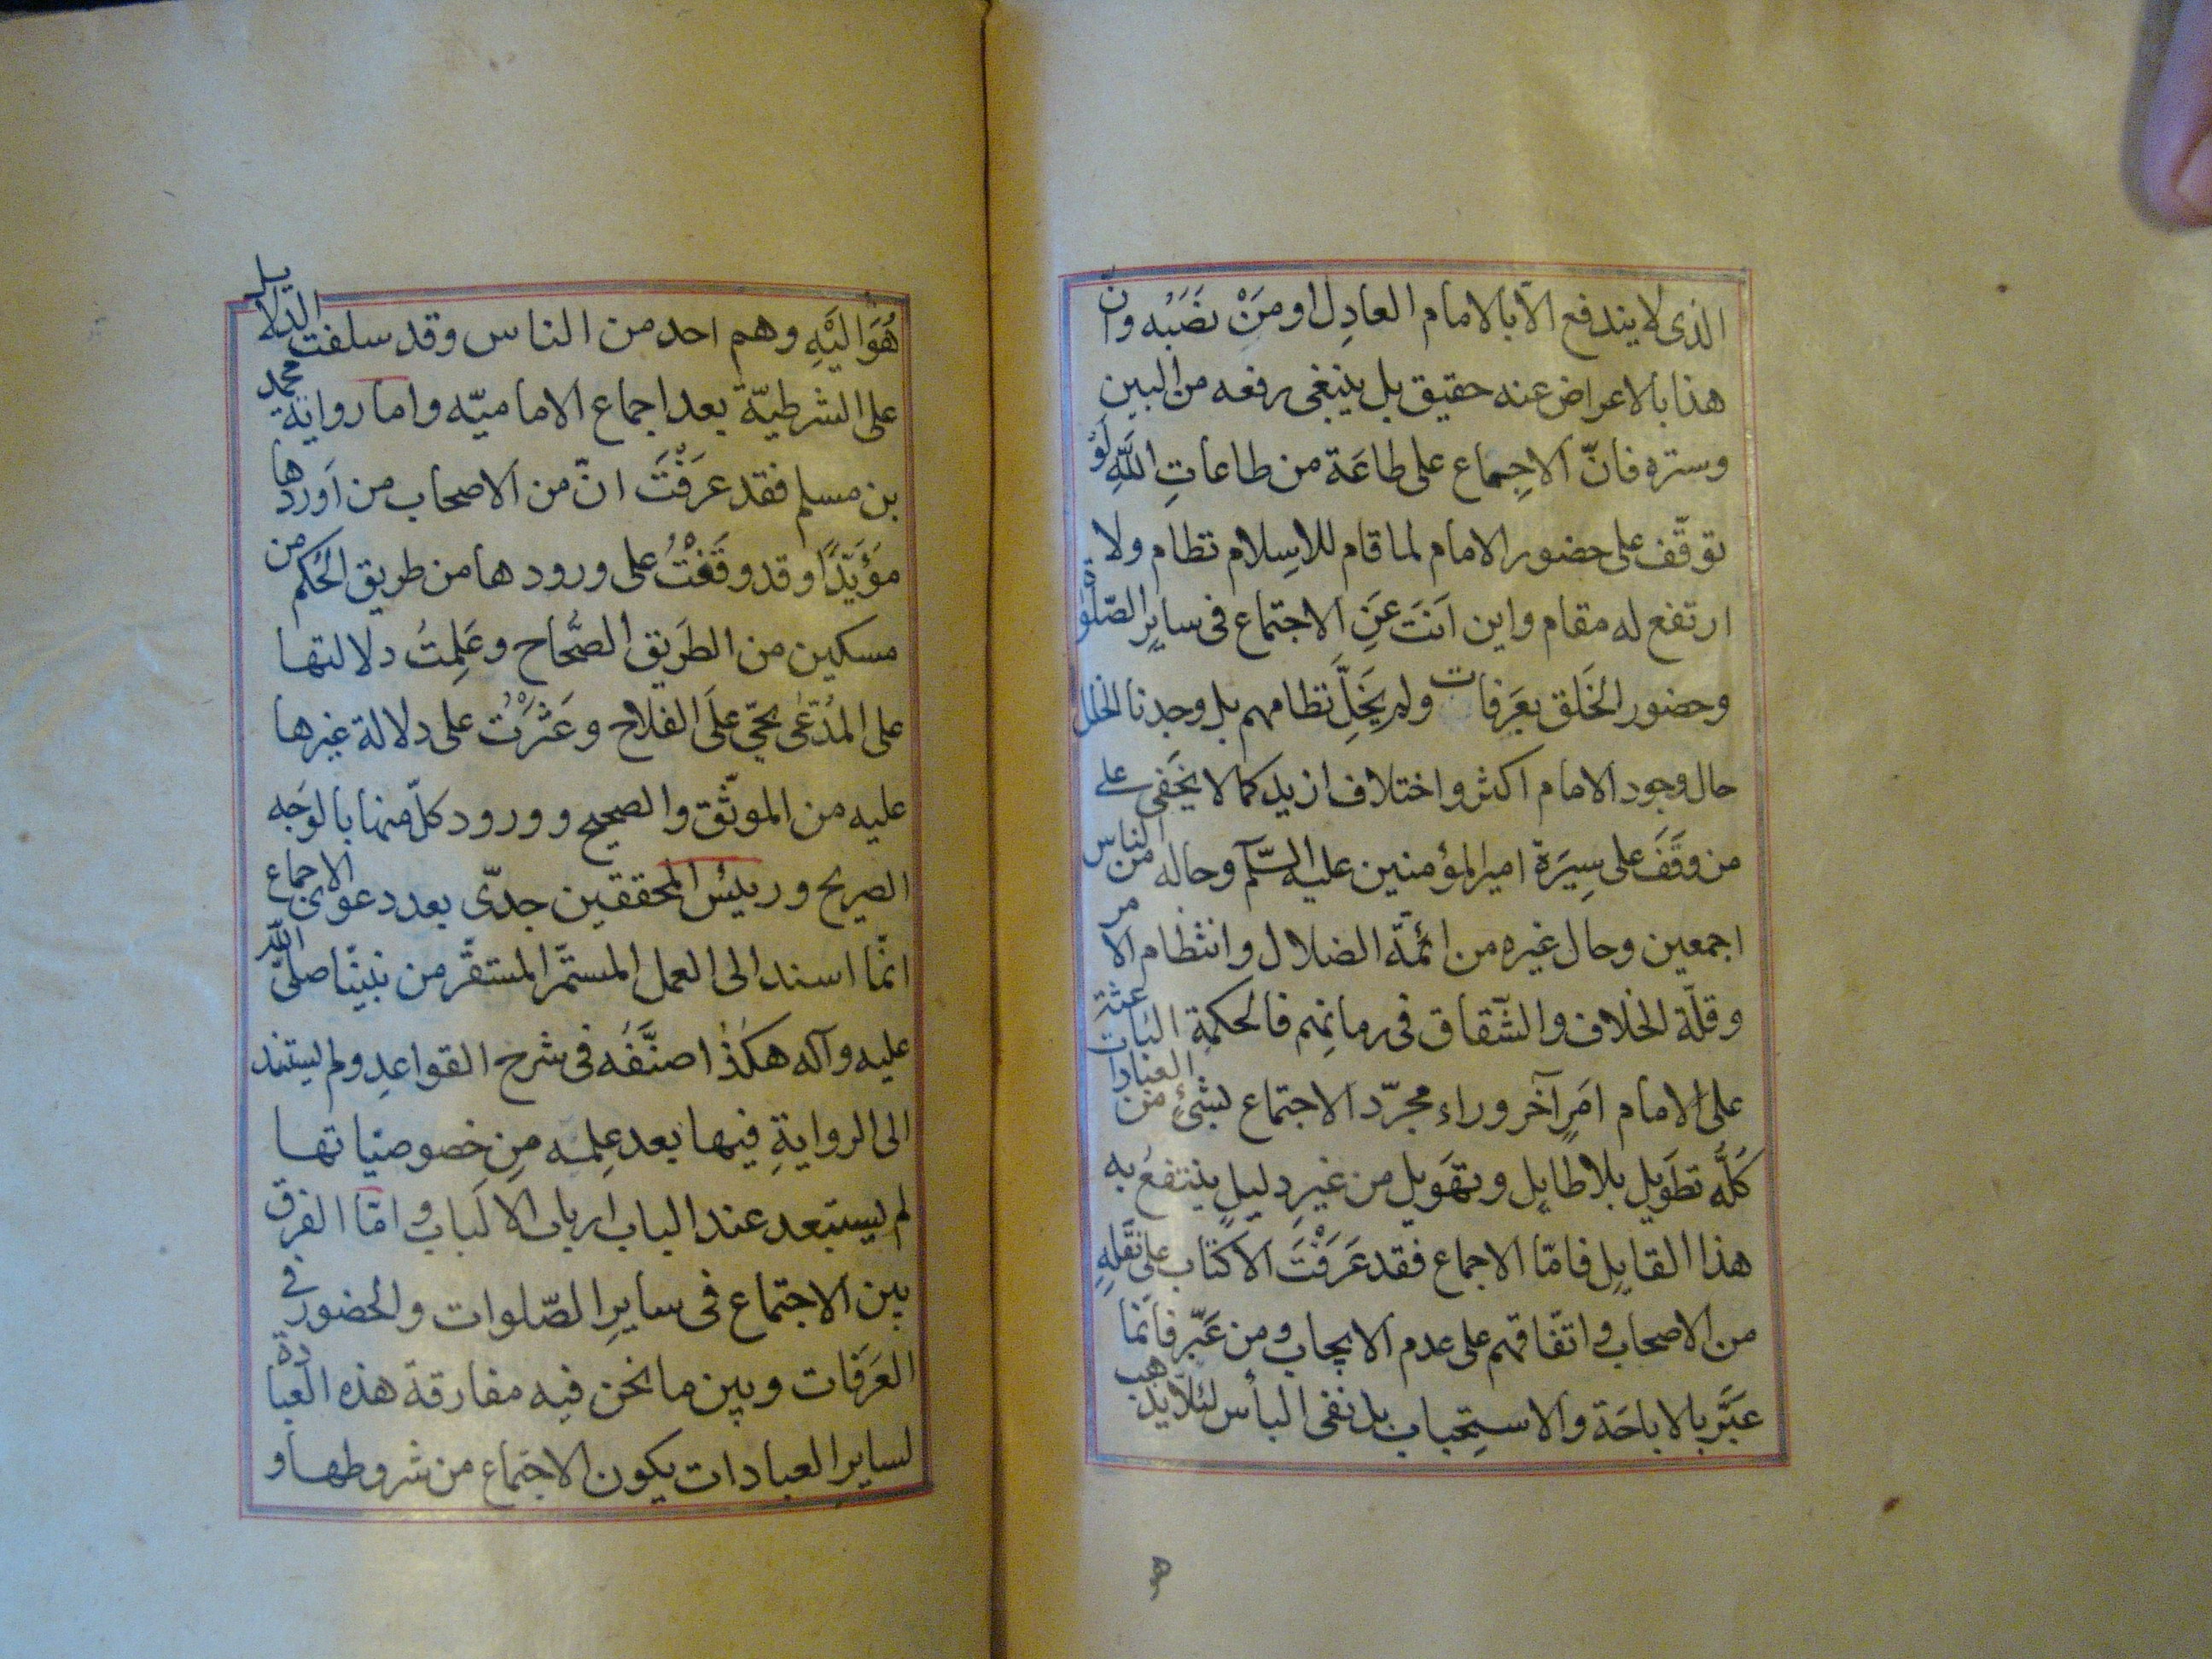 الذى لا يندفع الّا بالامام العادِل او مَنْ نَصَبَه وانّ
هذا بالاعراض عنه حقيق بل ينبغى رفعه من البين
وستره فانّ الاجِماع على طاعَة من طاعاتِ اللّٰهِ لَوْ
توقّف على حضور الامام لما قام للاسِلام نظام ولا
ارتفع له مقام واين اَنتَ عَنِ الاجتماع فى سايرِ الصّلوة
وحضور الخَلق بعَرفات ولم يَخَلَّ نظامهم بل وجدنا الخلل
حال وجود الامام اكثر واختلاف ازيد كما لا يَخَفى على
من وقَفَ على سِيَرة امير المؤمنين عليه السّلم وحاله من الناس
اجمعين وحال غيره من ائمّة الضلال وانتظام الامر
وقلّة الخلاف والشّقاق فى زمانهِم فالحكمة الباعثة
على الامام امَرٍ آخر وراء مجرّد الاجتماع لشئ من العبادات
كُلّه تطَويل بلا طايل وتهَويل من غيرِ دليلٍ ينتفعُ به
هذا القايل فامّا الاجماع فقد عَرَفْتَ الاكتاب على نَقلهِ
من الاصحاب واتّفاقهم على عدم الايجاب ومن عَبّر فانّما
عَبَّر بالاباحَة والاستِحباب بل نفى البأس لئلّا يذهب
هو
هُوَ اليَهِ وهم احد من الناس وقد سلفت الدلايل
على الشرطيّة بعد اجماع الاماميّه واما رواية محمد
بن مسلم فقد عَرَفْتَ انّ من الاصحاب من اَوردها
مؤَيّدًا وقد وقَفْتُ على ورودها من طريق الحَكم من
مسكين من الطَريق الصِّحاح وعَلِمتُ دلالتها
على المدّعى بحىّ علَى الفلاح وعَثَرْت على دلالة غيرها
عليه من الموثّق والصحيح وورود كلّ منها بالوَجه
الصريح ورييئس المحققين جدّى بعد دعوى الاجماع
انّما اسند الى العمل المستمّر المستقّر من نبيّنا صلىّ اللّٰه
عليه وآله هكذا صنَّفَه فى شرح القواعدِ ولم يستند
الى الروايةِ فيها بعد عِلمه مِن خصوصيّاتها
لم يستبعد عند الباب ارباب الالَباب وامّا الفرق
بين الاجتماع فى سايرِ الصّلوات والحضور فى
العَرَفات وبين ما نحن فيه مفارقة هذه العبادة
لساير العبادات يكون الاجتماع من شروطها و